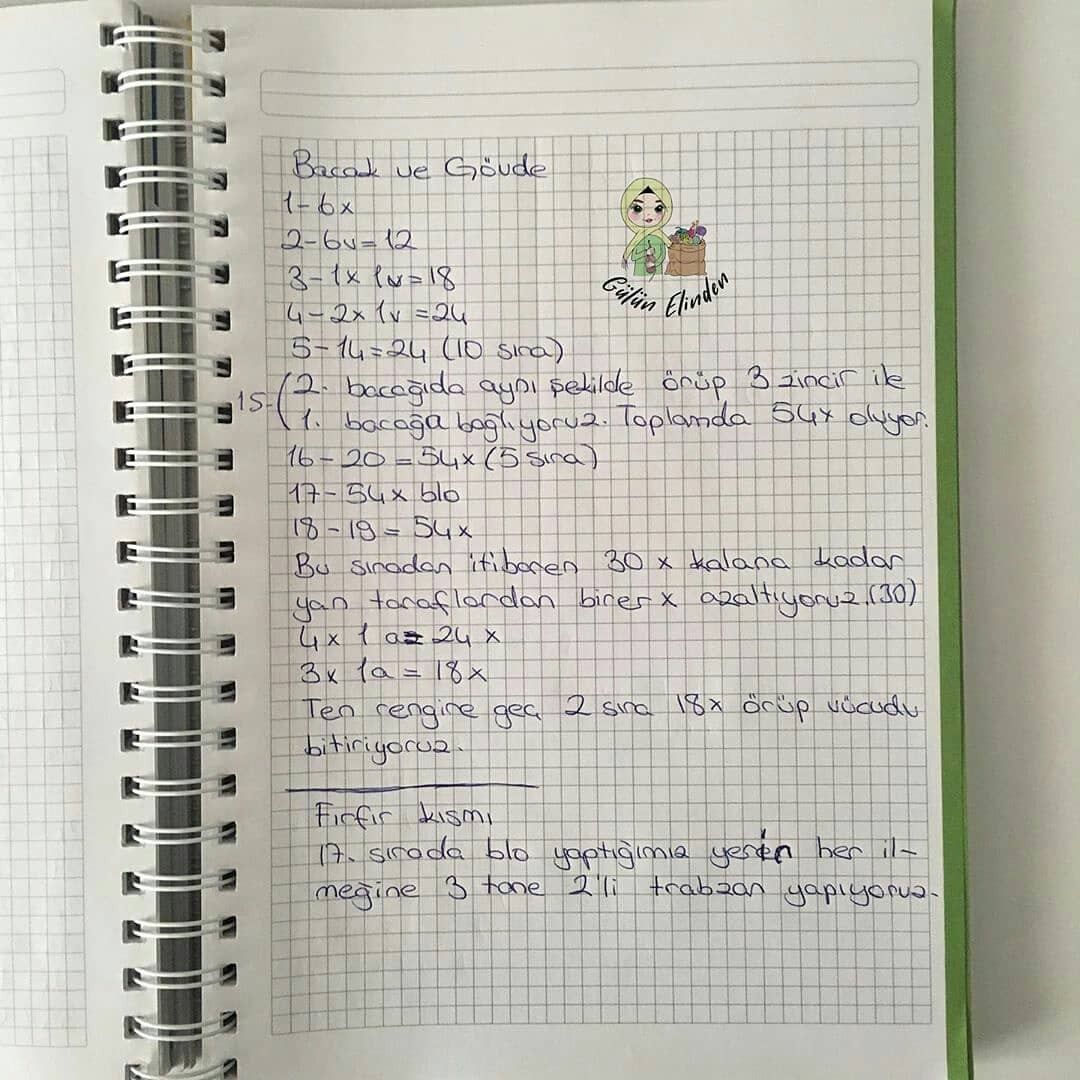 Bacak ve Gövde
1-6x
2-6v=12
3-1x 1v=18
4-2x 1v=24
5-14=24 (10 sıra)
15-(2. bacağıda aynı şekilde örüp 3 zincir ile
1. bacağa bağlıyoruz. Toplamda 54x oluyor.
16-20=54x (5 sıra)
17-54x blo
18-19=54x
Bu sıradan itibaren 30 x kalana kadar
yan taraflardan birer x azaltıyoruz.(30)
4x 1a=24x
3x 1a=18x
Ten rengine geç 2 sıra 18x örüp vücudu
bitiriyoruz.
Fırfır kısmı
17. sırada blo yaptığımız yerin her il-
meğine 3 tane 2'li trabzan yapıyoruz.
Gülün Elinden